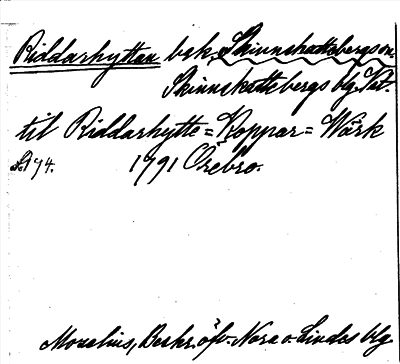 Riddarhyttan bsk. Skinnskattebergs sn.
Skinnskattebergs blg. Väst.
til Riddarhytte = Koppar = Wärk
S. 174. 1791 Örebro.
Moraelius, Beskr. öfv. Nora o. Lindes blg